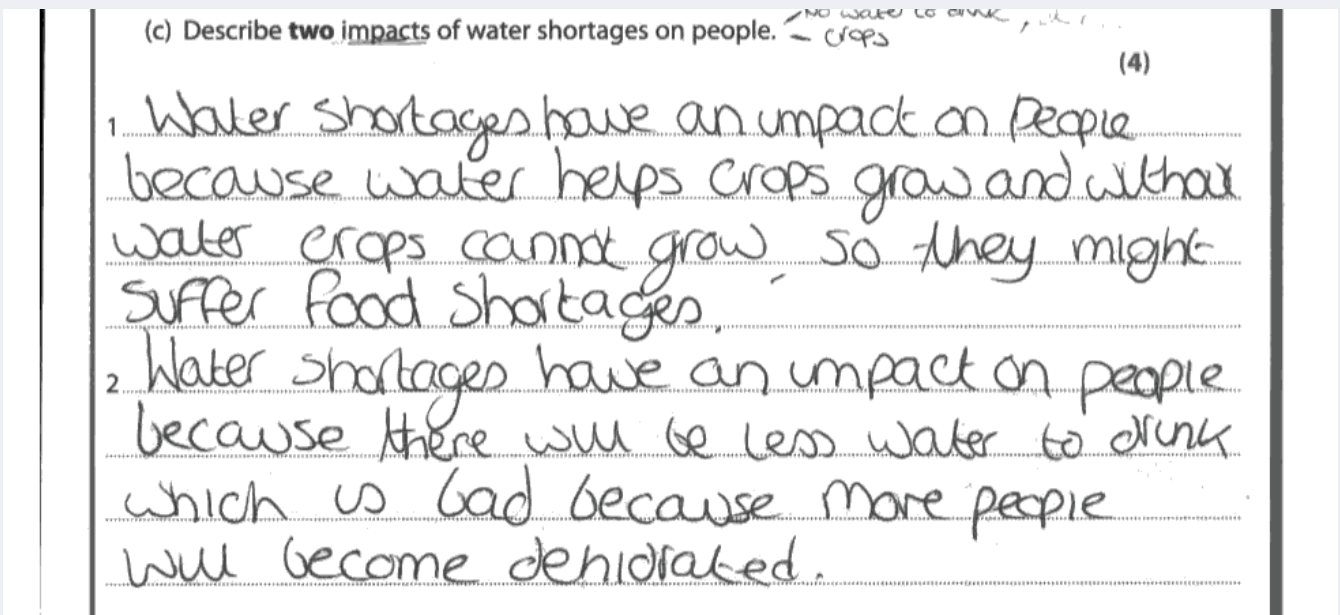 (c) Describe two impacts of water shortages on people.
- No water to drink
- crops
(4)
1 Water shortages have an impact on people
because water helps crops grow and without
water crops cannot grow, so they might
suffer food shortages.
2 Water shortages have an impact on people
because there will be less water to drink
which is bad because more people
will become dehidrated.